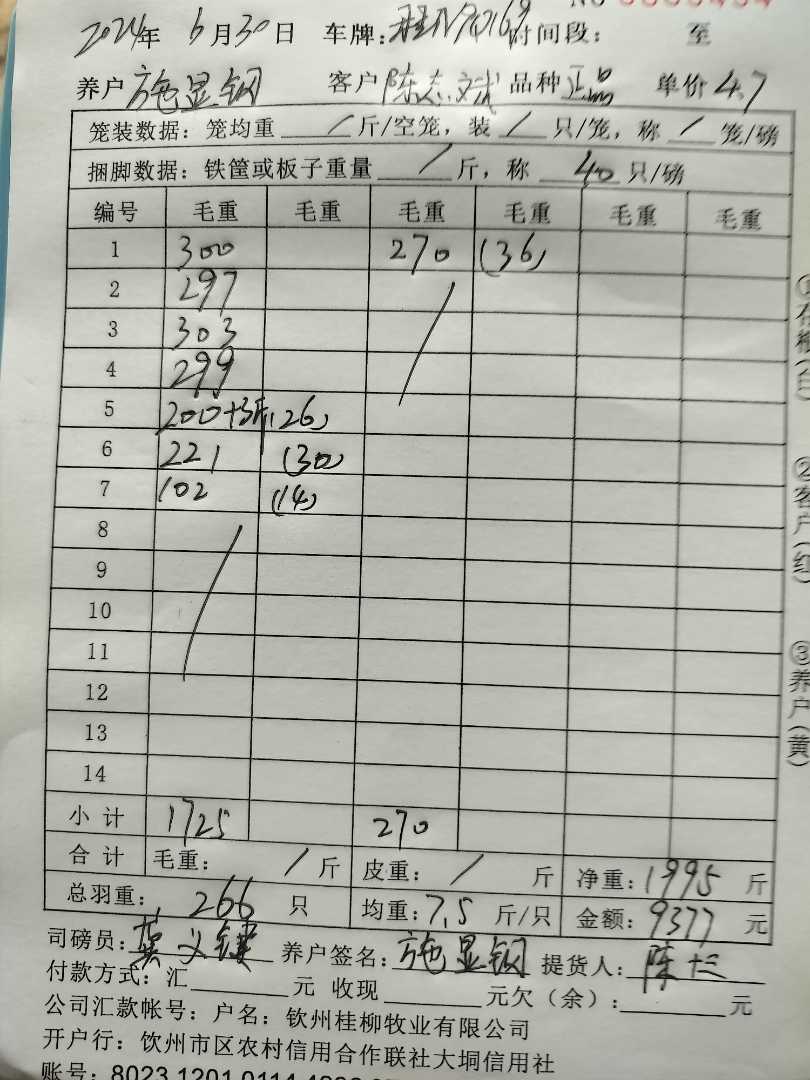 2024年 6月30日 车牌: 时间段: 至
养户 施显钢 客户 陈志斌 品种 正品 单价 4.7
笼装数据: 笼均重 / 斤/空笼, 装 / 只/笼, 称 / 笼/磅
捆脚数据: 铁筐或板子重量 / 斤, 称 40 只/磅
编号 毛重 毛重 毛重 毛重 毛重 毛重
1 300 270 (36)
2 297 /
3 303
4 299
5 200+3斤 (26)
6 221 (30)
7 102 (14)
8 /
9
10
11
12
13
14
小计 1725 270
合计 毛重: / 斤 皮重: / 斤 净重: 1995 斤
总羽重: 266 只 均重: 7.5 斤/只 金额: 9377 元
司磅员: 养户签名: 施显钢 提货人: 陈
付款方式: 汇 元 收现 元欠(余): 元
公司汇款帐号: 户名: 钦州桂柳牧业有限公司
开户行: 钦州市区农村信用合作联社大垌信用社
账号: 8023 1201 0114
②客户(红)
③养户(黄)